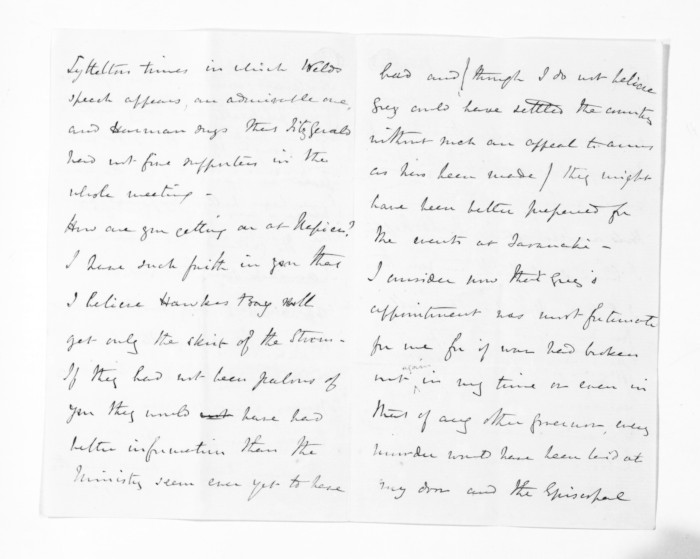 Lyttelton times in which Welds
speech appears, an admirable one,
and Harman says that FitzGerald
had not five supporters in the
whole meeting -
How are you getting on at Napier?
I have such faith in you that
I believe Hawkes Bay will
get only the skirt of the Storm -
If they had not been jealous of
you they would not have had
better information than the
Ministry seem ever yet to have
had and (though I do not believe
Grey could have settled the country
without such an appeal to arms
as has been made) they might
have been better prepared for
the events at Taranaki -
I consider now that Grey's
appointment was most fortunate
for me for if war had broken
out again in my time or even in
that of any other governor, every
murder would have been laid at
my door and the Episcopal